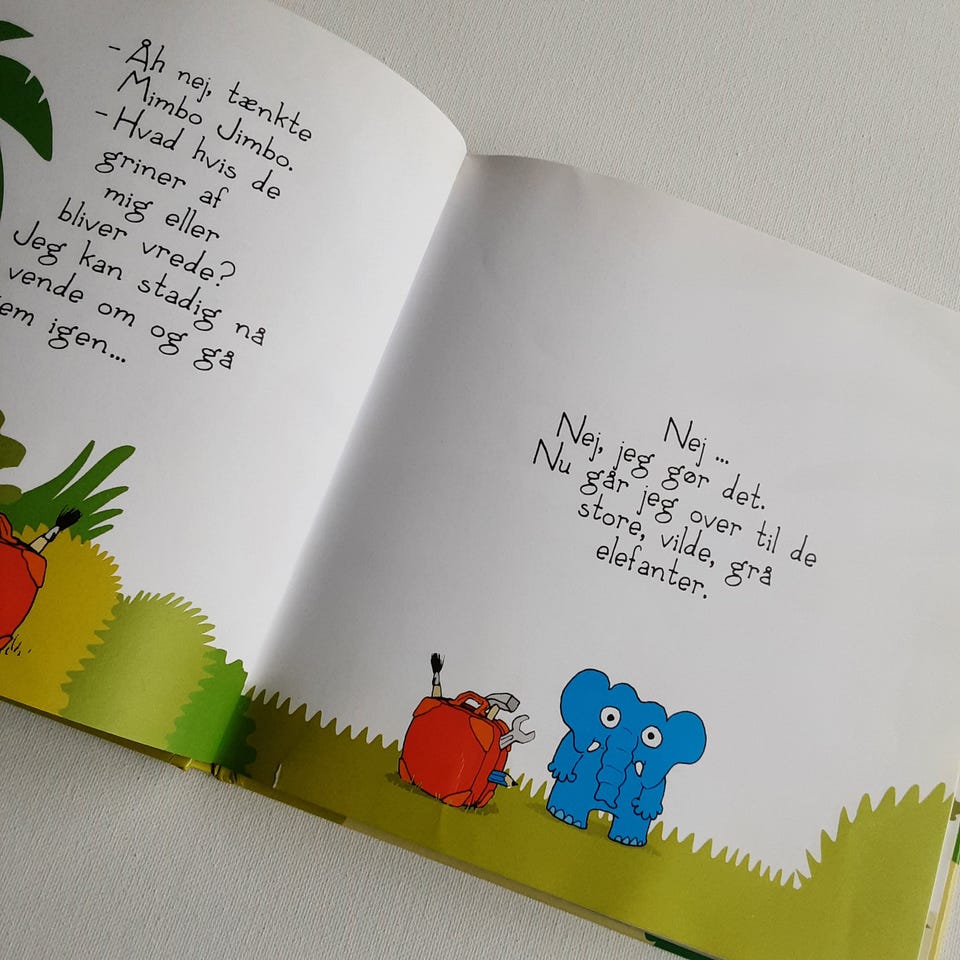 - Åh nej, tænkte
Mimbo Jimbo.
- Hvad hvis de
griner af
mig eller
bliver vrede?
Jeg kan stadig nå
vende om og gå
igen...
Nej ...
Nej, jeg gør det.
Nu går jeg over til de
store, vilde, grå
elefanter.